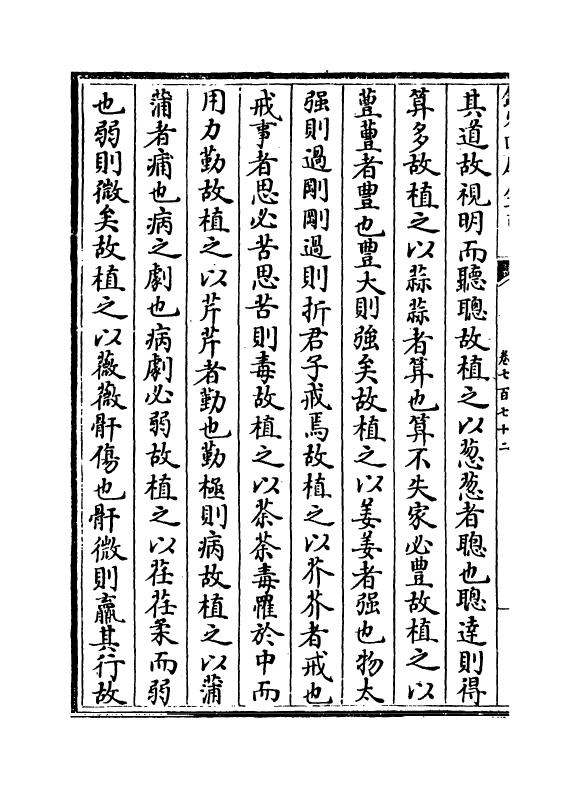 卷七百七十二
其道故視明而聽聰故植之以葱葱者聰也聰達則得
算多故植之以蒜蒜者算也算不失家必豐故植之以
蘴蘴者豐也豐大則強矣故植之以姜姜者强也物太
强則過剛剛過則折君子戒焉故植之以芥芥者戒也
戒事者思必苦思苦則毒故植之以荼荼毒罹於中而
用力勤故植之以芹芹者勤也勤極則病故植之以蒲
蒲者痡也病之劇也病劇必弱故植之以荏荏柔而弱
也弱則微矣故植之以薇薇骭傷也骭微則羸其行故